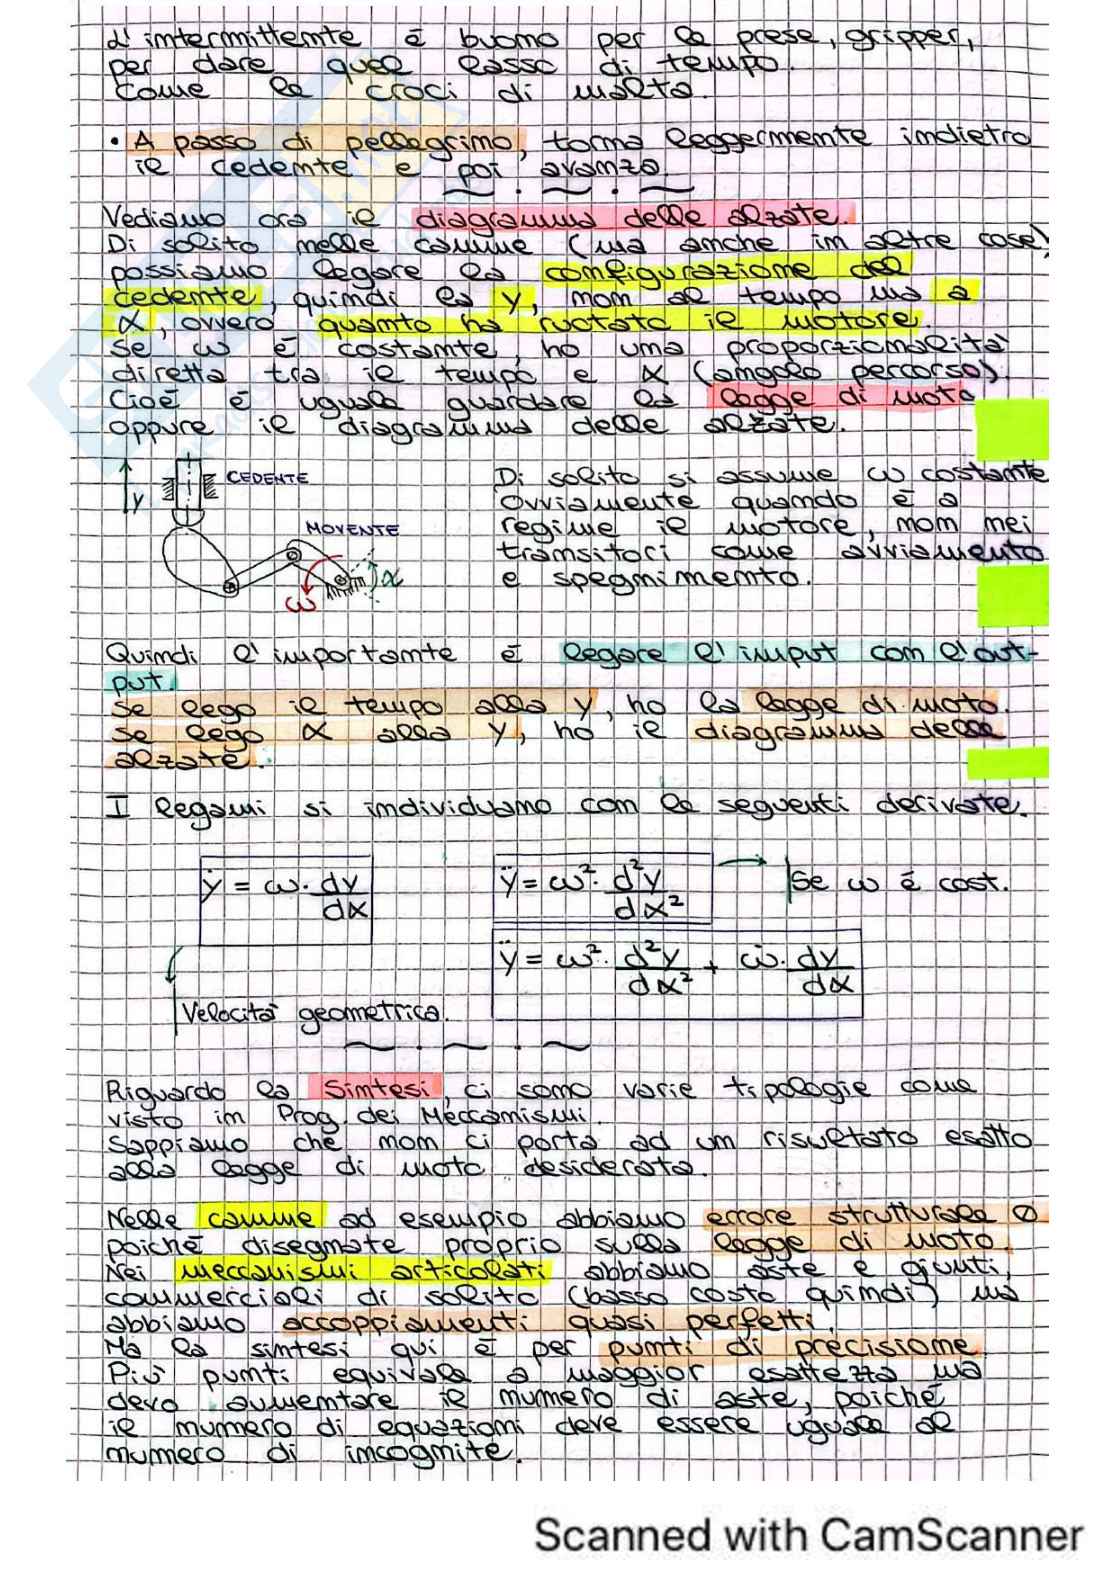 L'intermittente è buono per le prese, gripper,
per dare quel lasso di tempo.
Come le croci di malta.
• A passo di pellegrino, torna leggermente indietro
il cedente e poi avanza.
Vediamo ora il diagramma delle alzate.
Di solito nelle camme (ma anche in altre cose)
possiamo legare la configurazione del
cedente, quindi la y, non al tempo ma a
α, ovvero quanto ha ruotato il motore.
Se ω è costante, ho una proporzionalità
diretta tra il tempo e α (angolo percorso).
Cioè è uguale guardare la legge di moto
oppure il diagramma delle alzate.
y
CEDENTE
MOVENTE
ω
α
Di solito si assume ω costante
ovviamente quando è a
regime il motore, non nei
transitori come avviamento
e spegnimento.
Quindi l'importante è legare l'input con l'out-
put.
Se lego il tempo alla y, ho la legge di moto.
Se lego α alla y, ho il diagramma delle
alzate.
I legami si individuano con le seguenti derivate.
ẏ = ω · dy/dα
ÿ = ω² · d²y/dα²
Se ω è cost.
ÿ = ω² · d²y/dα² + ω̇ · dy/dα
Velocità geometrica.
Riguardo la Sintesi, ci sono varie tipologie come
visto in Prog. dei Meccanismi.
Sappiamo che non ci porta ad un risultato esatto
alla legge di moto desiderata.
Nelle camme ad esempio abbiamo errore strutturale 0
poiché disegnate proprio sulla legge di moto.
Nei meccanismi articolati abbiamo aste e giunti,
commerciali di solito (basso costo quindi) ma
abbiamo accoppiamenti quasi perfetti.
Ma la sintesi qui è per punti di precisione.
Più punti equivale a maggior esattezza ma
devo aumentare il numero di aste, poiché
il numero di equazioni deve essere uguale al
numero di incognite.
Scanned with CamScanner